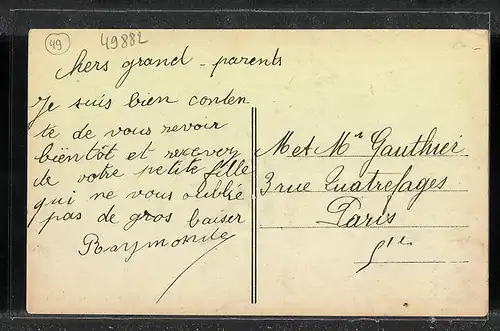 49
49882
chers grand - parents
Je suis bien conten
te de vous revoir
bientôt et recevez
de votre petite fille
qui ne vous oublie
pas de gros baiser
Raymonde
M et Me Gauthier
3 rue Quatrefages
Paris
5 ie